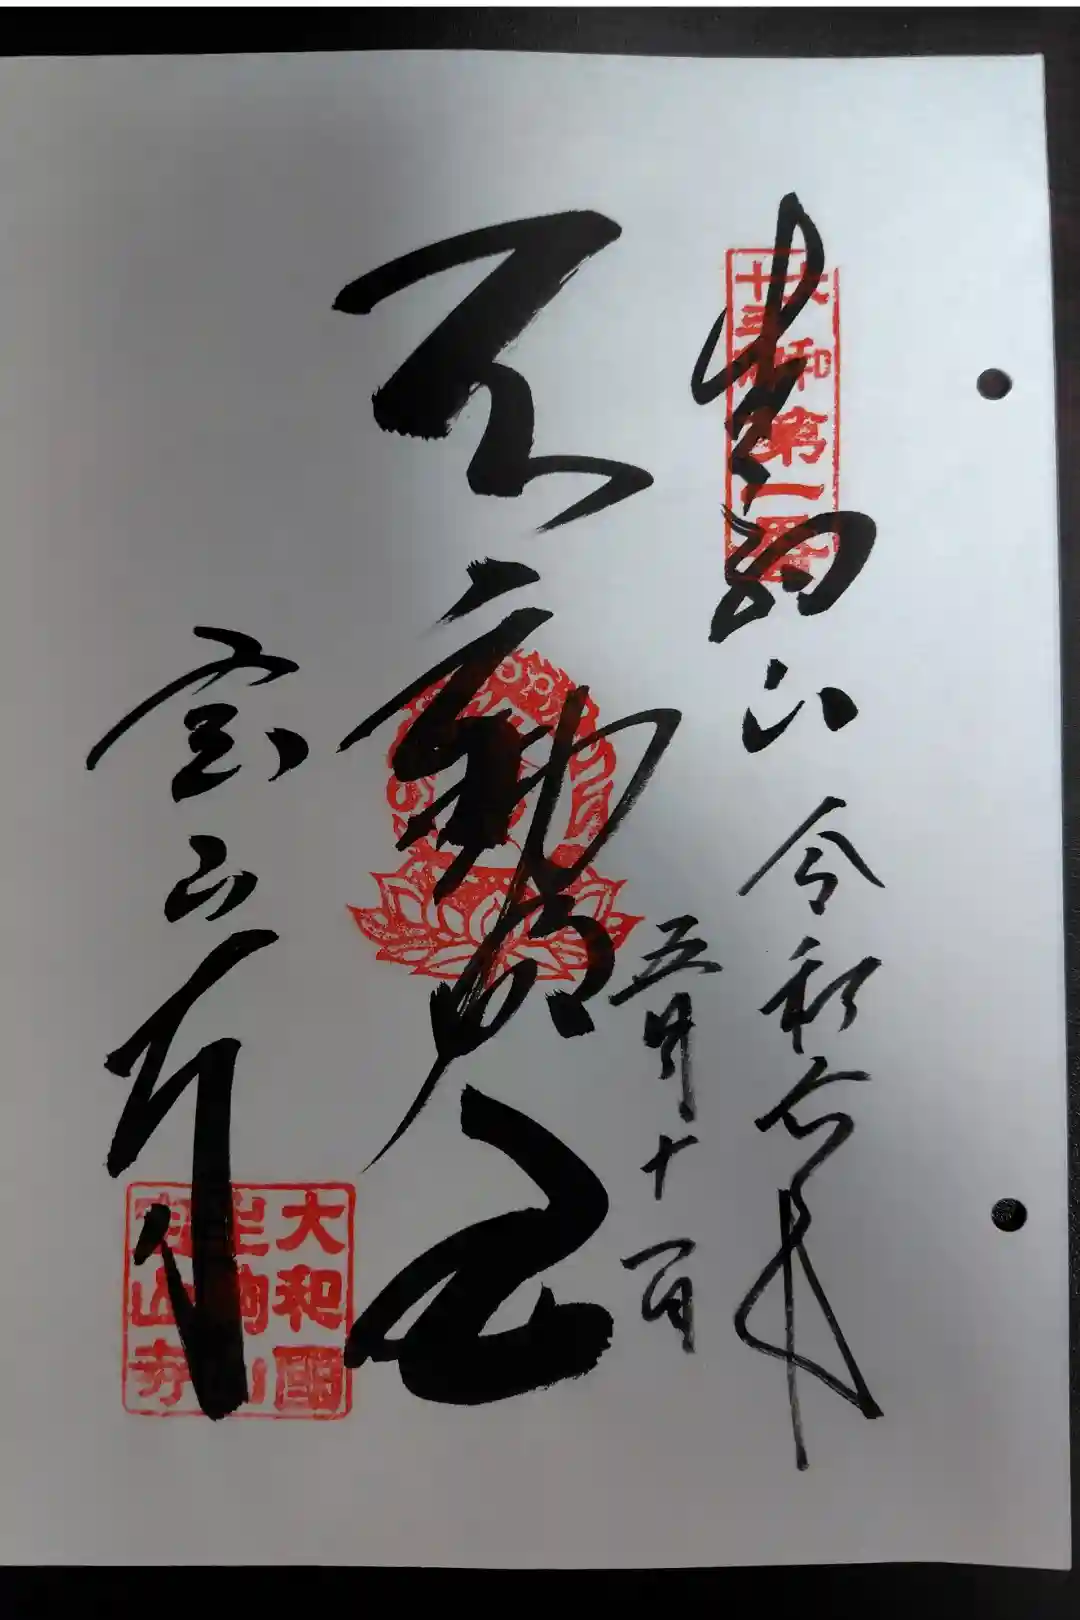 大和
十三佛
第一番
生駒山
令和六年
五月十一日
不動明王
宝山寺
大和國
生駒山
寳山寺